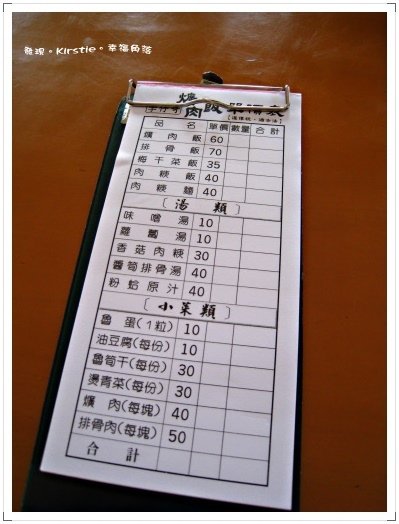 發現。Kirstie。幸福角落
爌肉飯單價表
品名 單價 數量 合計
爌肉飯 60
排骨飯 70
梅干菜飯 35
肉粳飯 40
肉粳麵 40
〔湯類〕
味噌湯 10
蘿蔔湯 10
香菇肉粳 30
醬筍排骨湯 40
粉蛤原汁 40
〔小菜類〕
魯蛋(1粒) 10
油豆腐(每份) 10
魯筍干(每份) 30
燙青菜(每份) 30
爌肉(每塊) 40
排骨肉(每塊) 50
合計